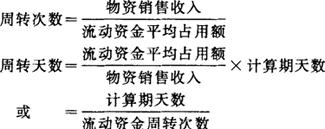 周转次数=物资销售收入/流动资金平均占用额
周转天数=流动资金平均占用额/物资销售收入×计算期天数
或 =计算期天数/流动资金周转次数